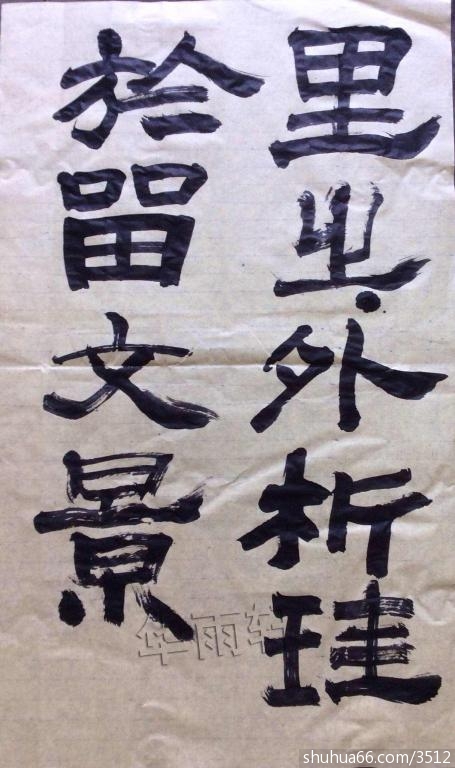 里之外析珪
於留文景
华雨轩
shuhua66.com/3512